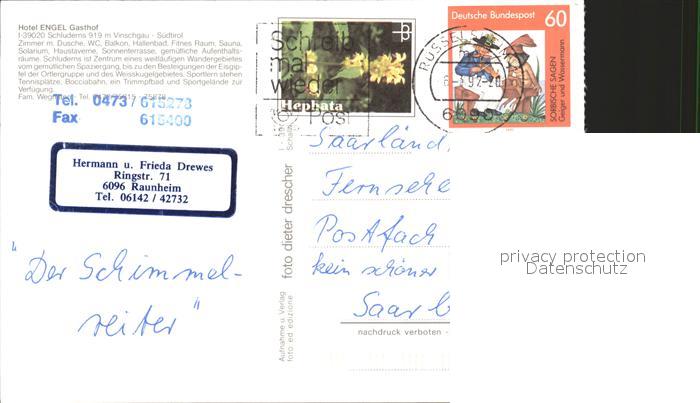 Hotel ENGEL Gasthof
I-39020 Schluderns 919 m Vinschgau - Südtirol
Zimmer m. Dusche, WC, Balkon, Hallenbad, Fitnes Raum, Sauna,
Solarium, Haustaverne, Sonnenterrasse, gemütliche Aufenthalts-
räume. Schluderns ist Zentrum eines weitläufigen Wandergebietes
vom gemütlichen Spaziergang, bis zu den Besteigungen der Eisgip-
fel der Ortlergruppe und des Weisskugelgebietes. Sportlern stehen
Tennisplätze, Bocciabahn, ein Trimmpfad und Sportgelände zur
Verfügung.
Tel. 0473/615278
Fax 615400
Hermann u. Frieda Drewes
Ringstr. 71
6096 Raunheim
Tel. 06142 / 42732
"Der Schimmel-
reiter"
Schreib
mal
wieder
Post
Hephata
Deutsche Bundespost 60
SORBISCHE SAGEN
Geiger und Wassermann
foto dieter drescher
Aufnahme u. Verlag
foto ed edizione
Saarländ.
Fernsehe
Postfach
kein schöner
Saarb
nachdruck verboten -
privacy protection
Datenschutz